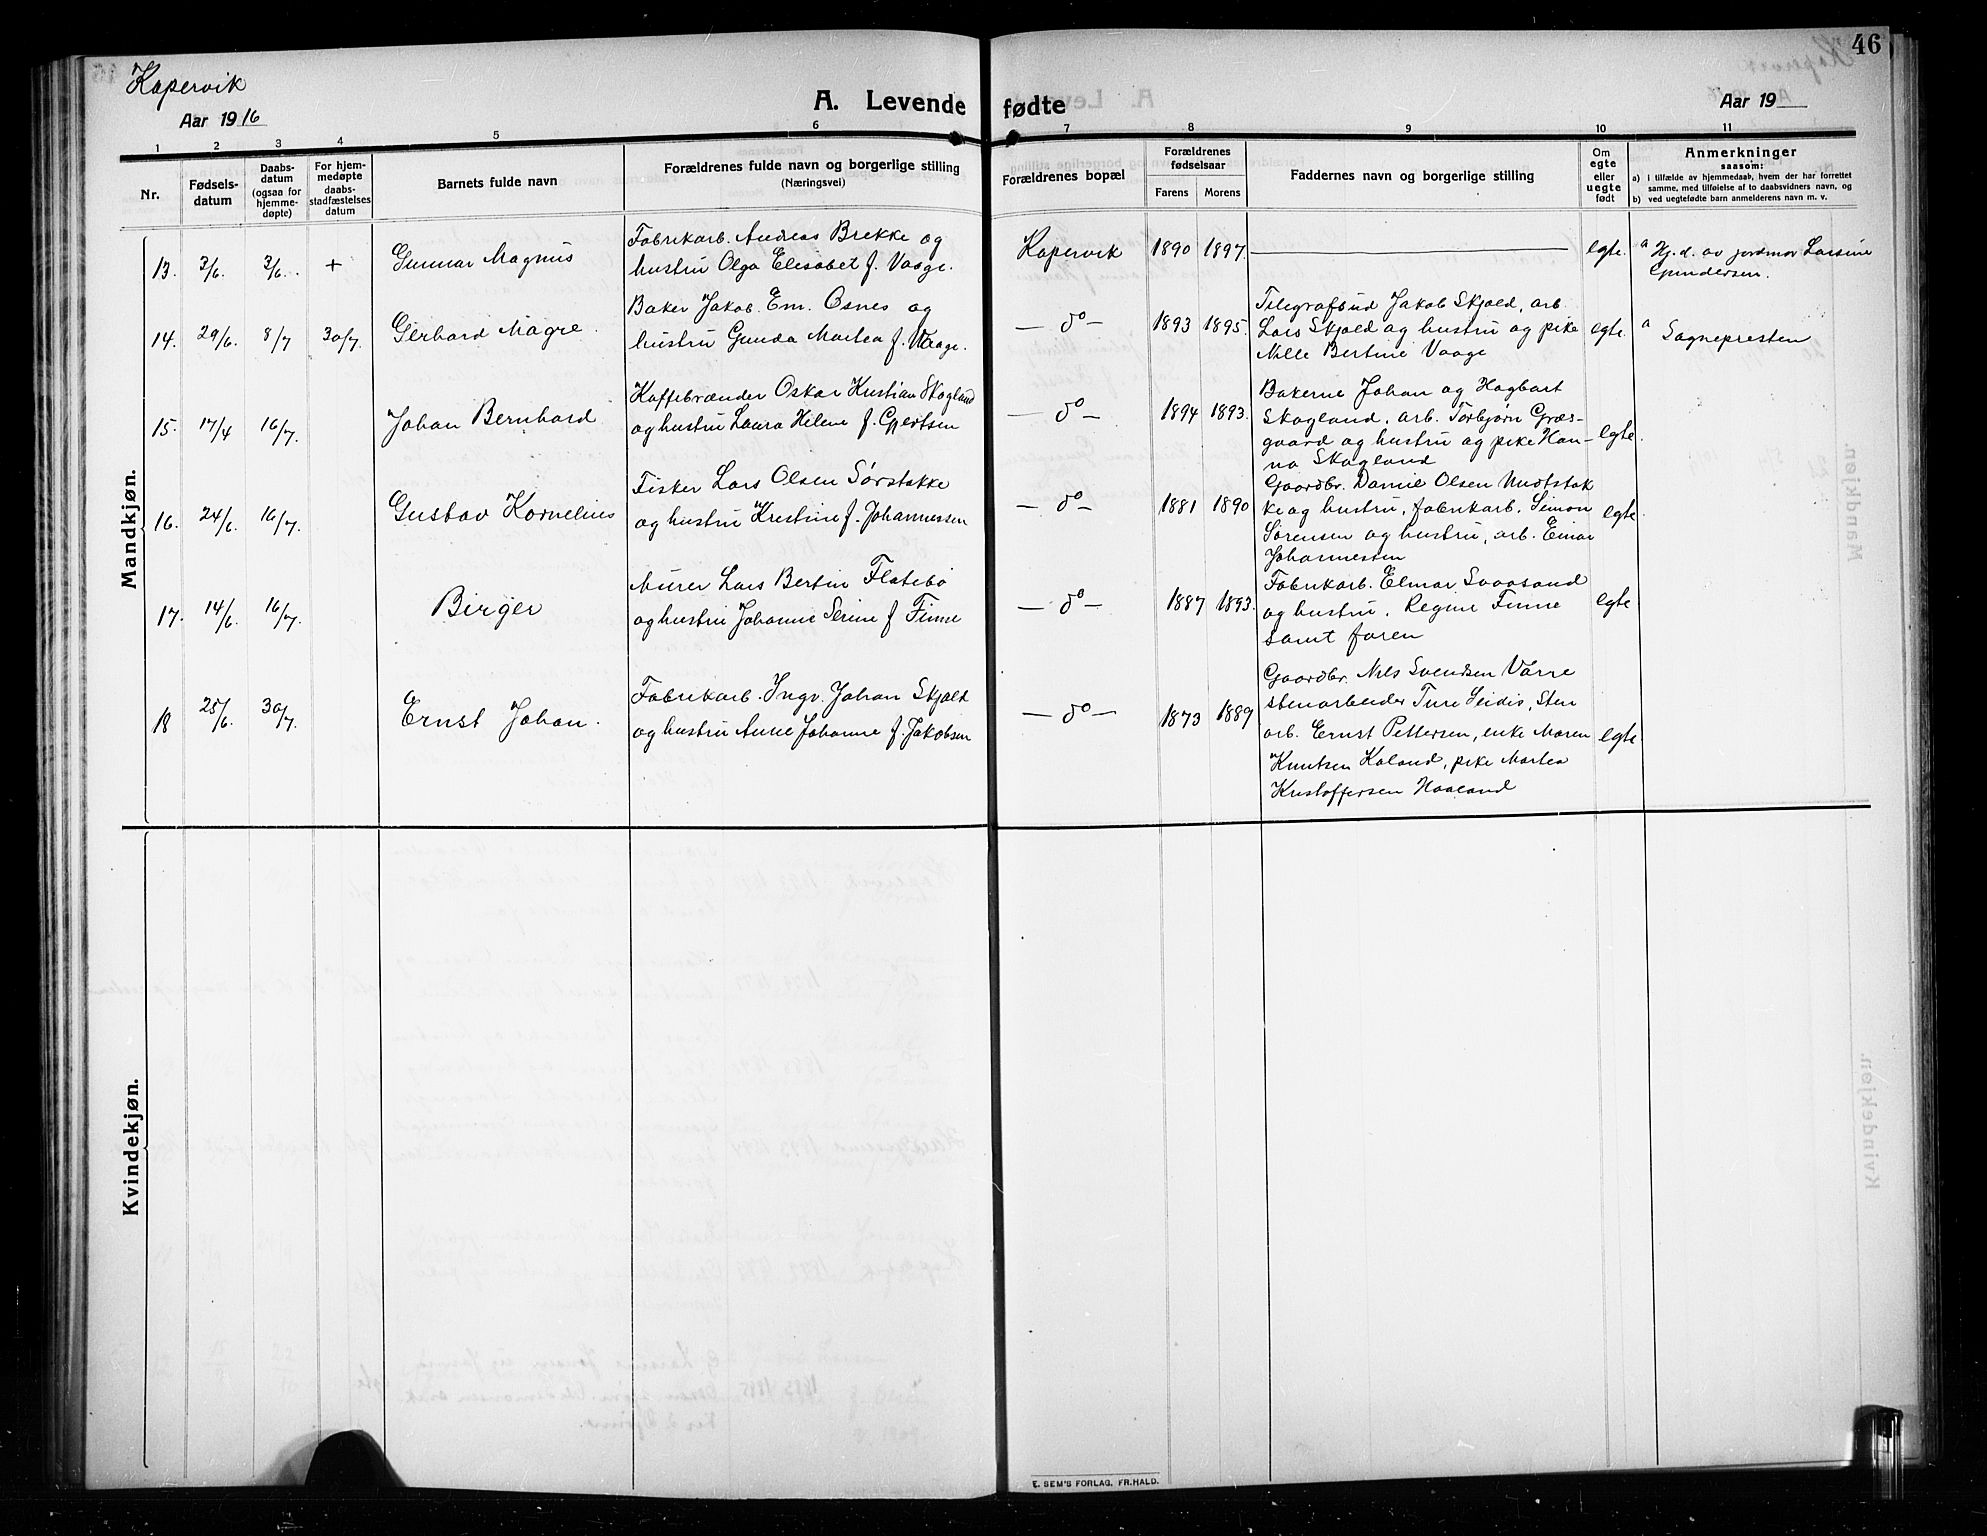 46
Kopervik
Aar 1916
A. Levende fødte
Aar 19
1 2 3 4 5 6 7 8 9 10 11
Nr.
Fødsels-
datum
Daabs-
datum
(ogsaa for
hjemme-
døpte)
For hjem-
medøpte
daabs-
stadfæstelses
datum
Barnets fulde navn
Forældrenes fulde navn og borgerlige stilling
(Næringsvei)
Forældrenes bopæl
Forældrenes
fødselsaar
Farens Morens
Faddernes navn og borgerlige stilling
Om
egte
eller
uegte
født
Anmerkninger
saasom:
a) i tilfælde av hjemmedaab, hvem der har forrettet
samme, med tilføielse af to daabsvidners navn, og
b) ved uegtefødte barn anmelderens navn m. v.
Mandkjøn.
13. 3/6. 3/6. + Gunnar Magnus
Fabrikarb. Andreas Brekke og
hustru Olga Elisabet f. Vaage.
Kopervik 1890 1897. egte.
a Hj.d. av jordmor Larsine
Gundersen.
14. 29/6. 8/7 30/7. Gerhard Magne.
Baker Jakob Em. Osnes og
hustru Gunda Martea f. Vaage.
— do — 1893 1895.
Telegrafbud Jakob Skjold, arb.
Lars Skjold og hustru og pike
Nille Bertine Vaage
egte.
a Sognepresten
15. 17/4 16/7. Johan Bernhard
Kaffebrænder Oskar Kristian Skogland
og hustru Laura Helene f. Gjertsen
— do — 1894 1893.
Bakerne Johan og Hagbart
Skogland, arb. Torbjørn Græs-
gaard og hustru og pike Han-
na Skogland
egte.
16. 24/6. 16/7. Gustav Kornelius
Fisker Lars Olsen Sørstokke
og hustru Kristine f. Johannessen
— do — 1881 1890
Gaardbr. Daniel Olsen Midtstok
ke og hustru, fabrikarb. Simon
Sørensen og hustru, arb. Einar
Johannessen
egte
17. 14/6. 16/7. Birger
Murer Lars Bertin Flatebø
og hustru Johanne Serine f. Finne
— do — 1887 1893.
Fabrikarb. Elmar Svaasand
og hustru, Regine Finne
samt faren
egte
18 25/6. 30/7. Ernst Johan.
Fabrikarb. Ingv. Johan Skjold
og hustru Anne Johanne f. Jakobsen
— do — 1873 1889
Gaardbr. Nils Svendsen Vårre
stenarbeider Ture Seidis, Sten
arb. Ernst Pettersen, enke Maren
Knutsen Høland, pike Martea
Kristoffersen Haaland
egte.
Kvindekjøn.
E. SEM'S FORLAG, FR.HALD.